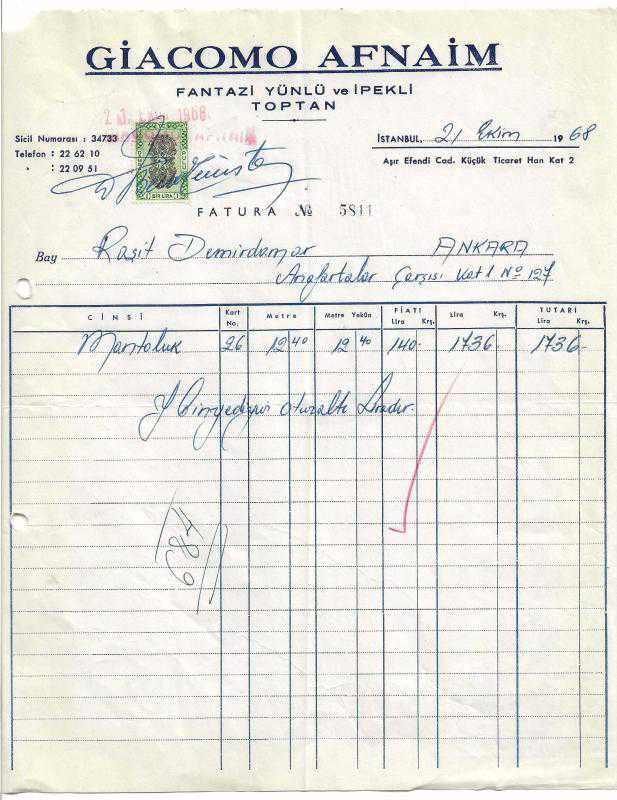 GİACOMO AFNAİM
FANTAZİ YÜNLÜ ve İPEKLİ
TOPTAN
Sicil Numarası : 34733
Telefon : 22 62 10
" : 22 09 51
BİR LİRA
İSTANBUL, 21 Ekim 1968
Aşır Efendi Cad. Küçük Ticaret Han Kat 2
FATURA № 5811
Bay Raşit Demirdamar ANKARA
Anafartalar Çarşısı Kat 1 No 127
CİNSİ Kart No. Metre Metre Yekûn FİATI Lira Krş. Lira Krş. TUTARI Lira Krş.
Mantoluk 26 12 40 12 40 140- 1736- 1736-
Y Binyediyüz otuzaltı Liradır.